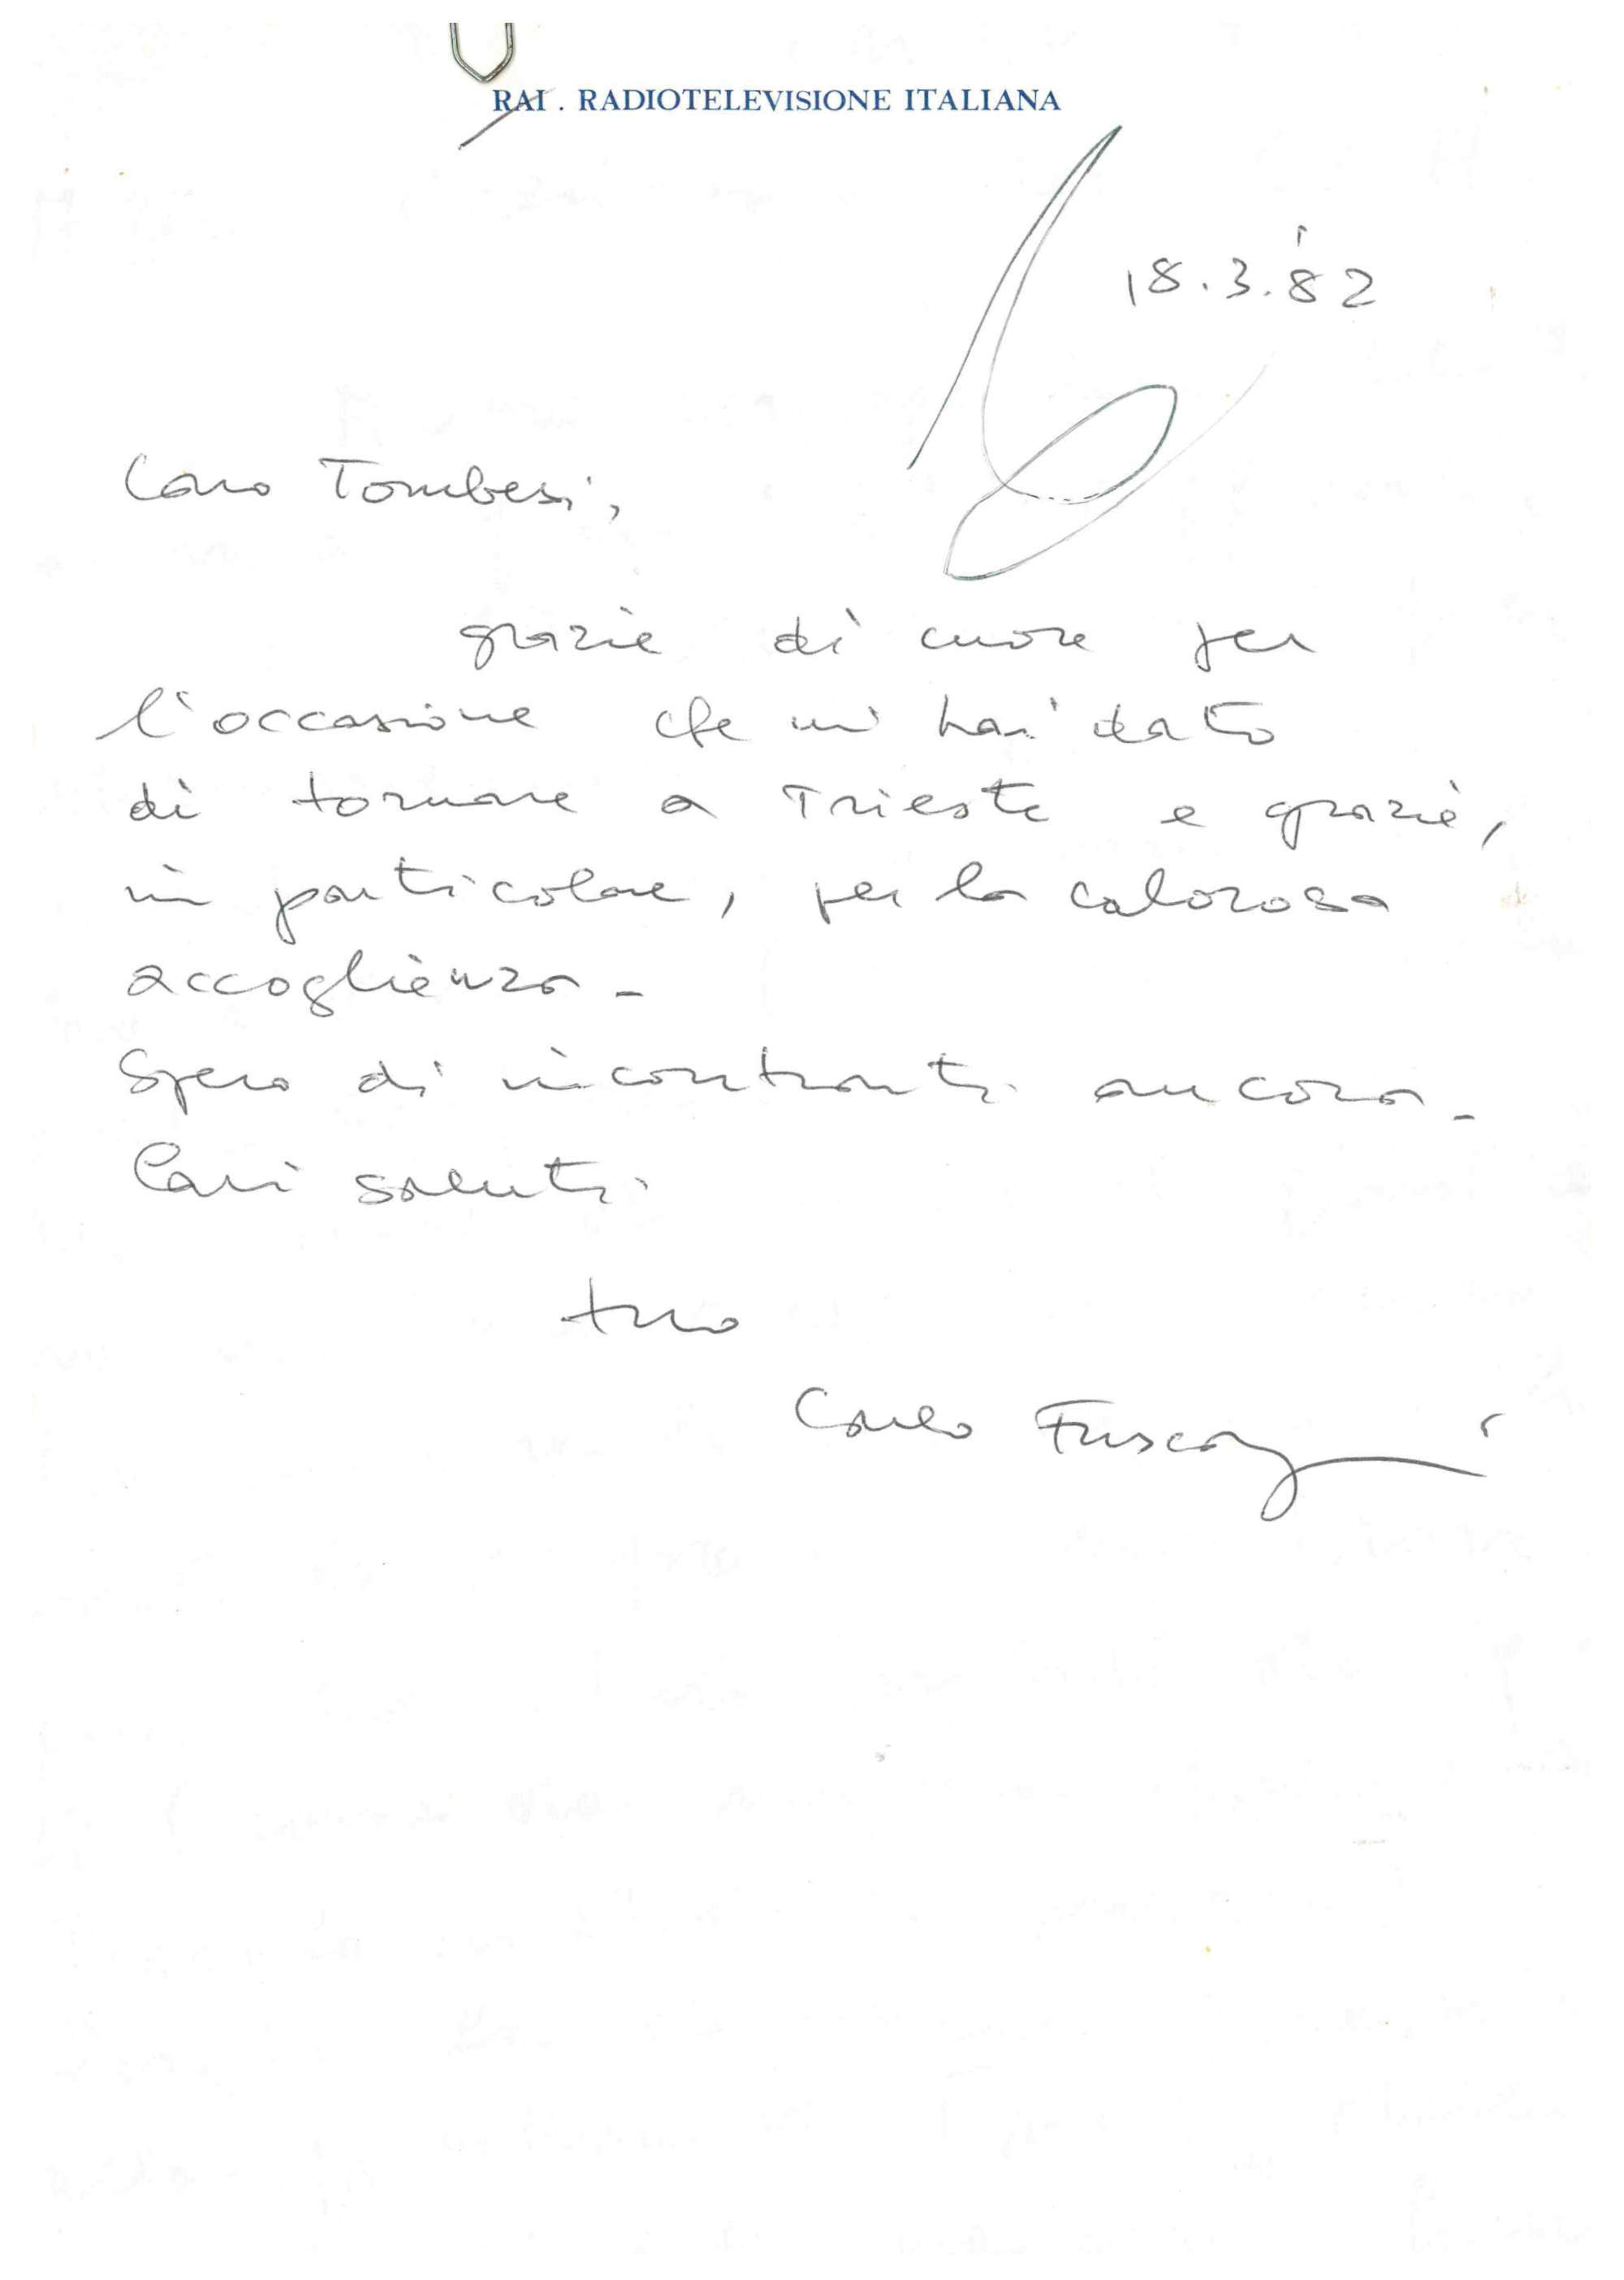 RAI . RADIOTELEVISIONE ITALIANA
18.3.'82
Caro Tombesi,
grazie di cuore per
l'occasione che mi hai dato
di tornare a Trieste e grazie,
in particolare, per la calorosa
accoglienza -
Spero di incontrarti ancora -
Cari saluti
tuo
Carlo Fuscagni